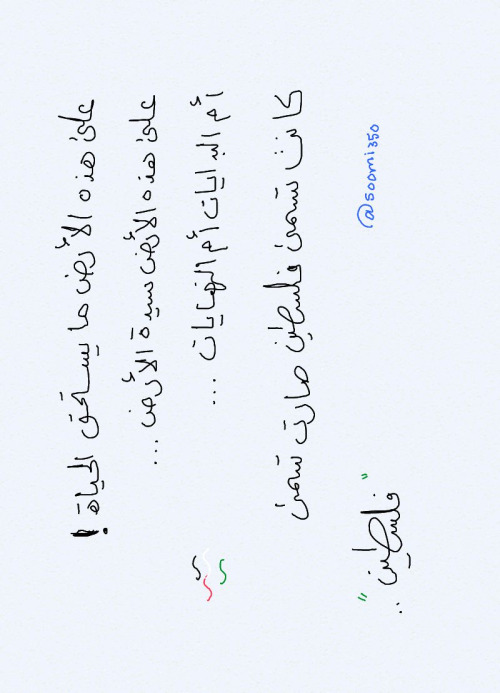 على هذه الأرض ما يستحق الحياة!
على هذه الأرض سيدة الأرض ...
أم البدايات أم النهايات ...
كانت تسمى فلسطين صارت تسمى
"فلسطين" ..
@soomi350